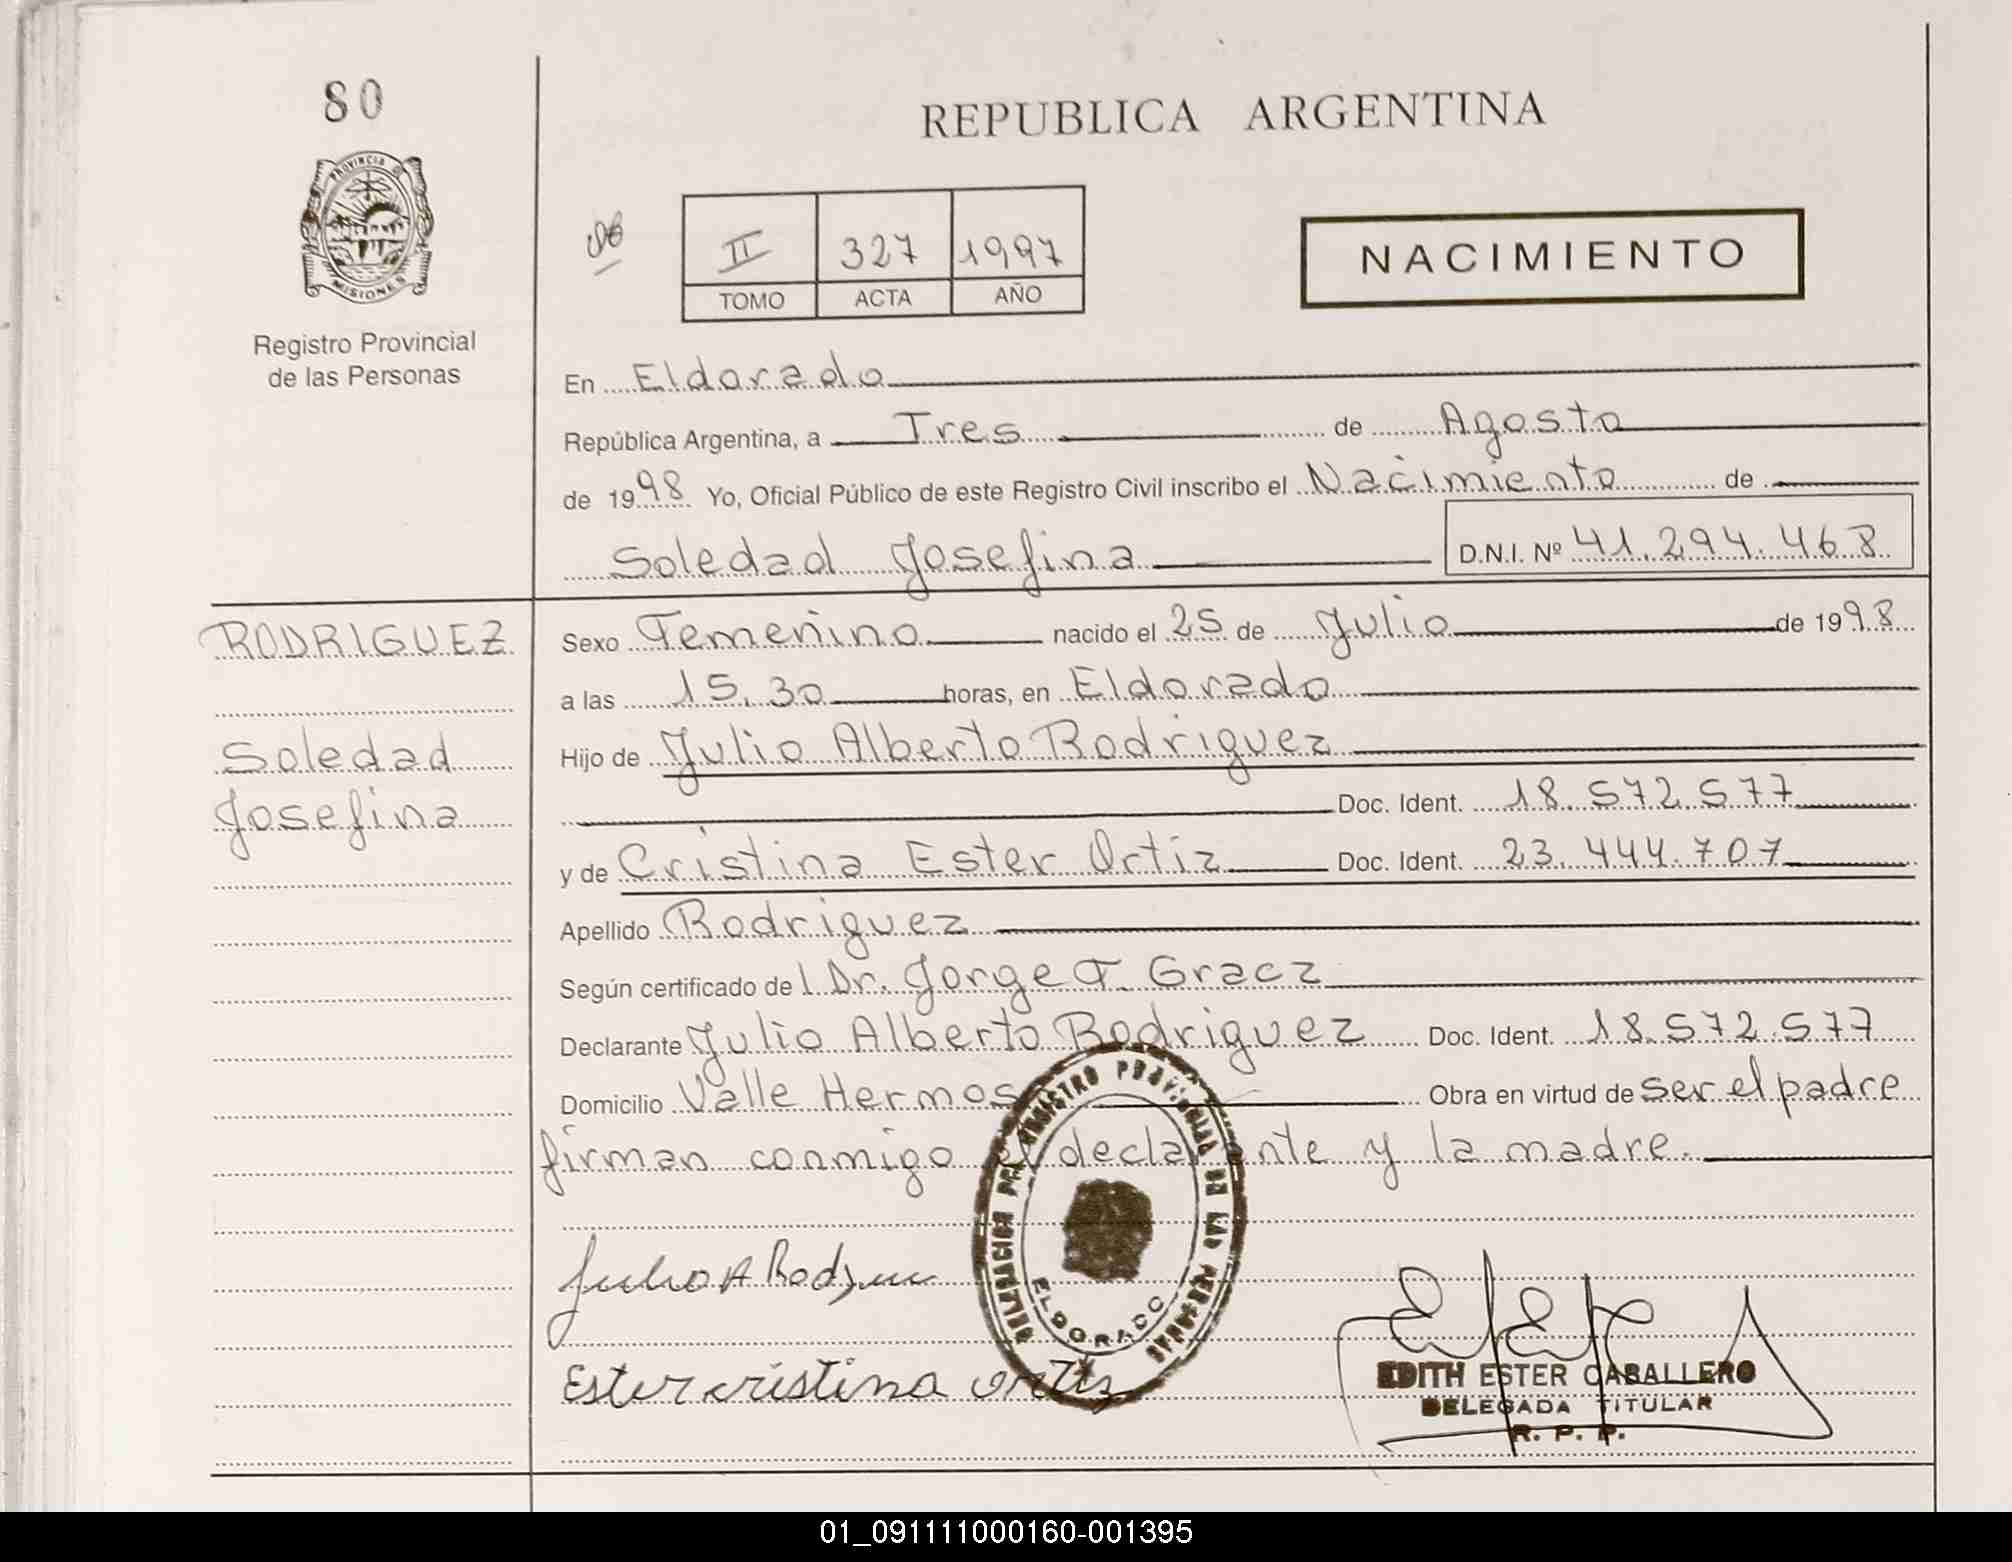 80
REPUBLICA ARGENTINA
PROVINCIA DE
MISIONES
Registro Provincial
de las Personas
II 327 1997
TOMO ACTA AÑO
NACIMIENTO
En Eldorado
República Argentina, a Tres de Agosto
de 1998 Yo, Oficial Público de este Registro Civil inscribo el Nacimiento de
Soledad Josefina D.N.I. Nº 41.294.468
RODRIGUEZ
Soledad
Josefina
Sexo Femenino nacido el 25 de Julio de 1998
a las 15.30 horas, en Eldorado
Hijo de Julio Alberto Rodriguez
Doc. Ident. 18.572.577
y de Cristina Ester Ortiz Doc. Ident. 23.444.707
Apellido Rodriguez
Según certificado de l Dr. Jorge F. Gracz
Declarante Julio Alberto Rodriguez Doc. Ident. 18.572.577
Domicilio Valle Hermoso Obra en virtud de ser el padre
firman conmigo el declarante y la madre.
Julio A Rodriguez
Ester cristina ortiz
REGISTRO PROVINCIAL DE LAS PERSONAS
ELDORADO
EDITH ESTER CABALLERO
DELEGADA TITULAR
R. P. P.
01_091111000160-001395